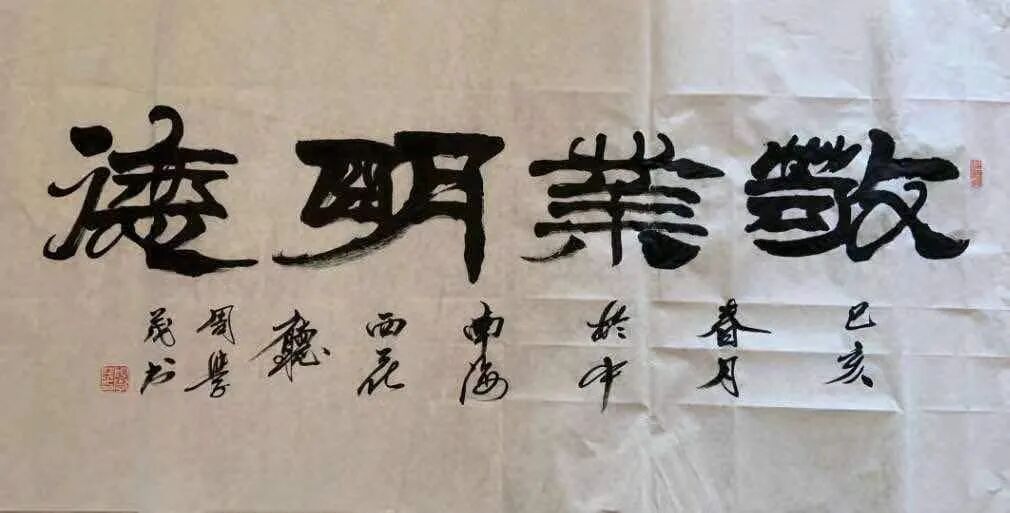 敬業明德
己亥
春月
於中
南海
西花
廳
周學
茂书